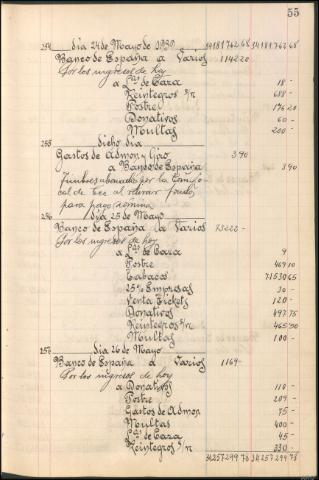 55
254 día 24 de Mayo de 1939 34181762 68 34181762 68
Banco de España a Varios 1142 20
Por los ingresos de hoy
a Lᵃˢ de Caza 18 -
Reintegros s/r 688 -
Postre 176 20
Donativos 60 -
Multas 200 -
255 dicho día
Gastos de Admon y Giro 3 90
a Banco de España 3 90
por la
cal de al retirar fondos
para pago nómina
256 día 25 de Mayo
Banco de España a Varios 73222 -
Por los ingresos de hoy
a Lᵃˢ de Caza 9
Postre 469 10
Tabacos 71530 65
25% Empresas 30 -
Venta Tickets 120 -
Donativos 497 75
Reintegros s/r 465 50
Multas 100 -
257 día 26 de Mayo
Banco de España a Varios 1169 -
Por los ingresos de hoy
a Donativos 110 -
Postre 209 -
Gastos de Admon 75 -
Multas 400 -
Lᵃˢ de Caza 45 -
Reintegros s/r 330 -
34257299 78 34257299 78